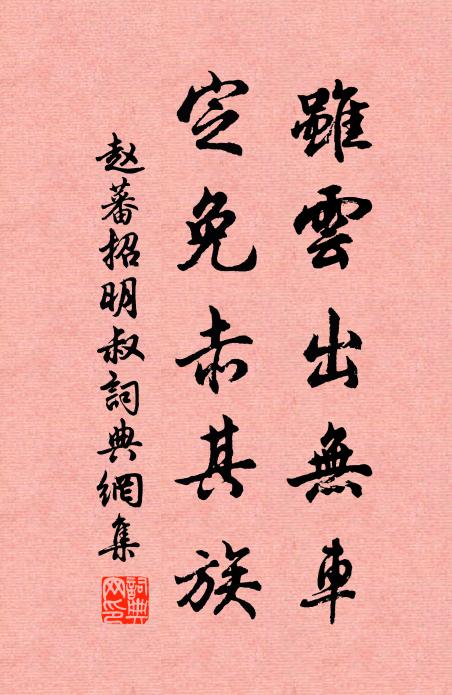 雖雲出無車
定免赤其族
赵蕃招明叔詞典網集
詞典網印